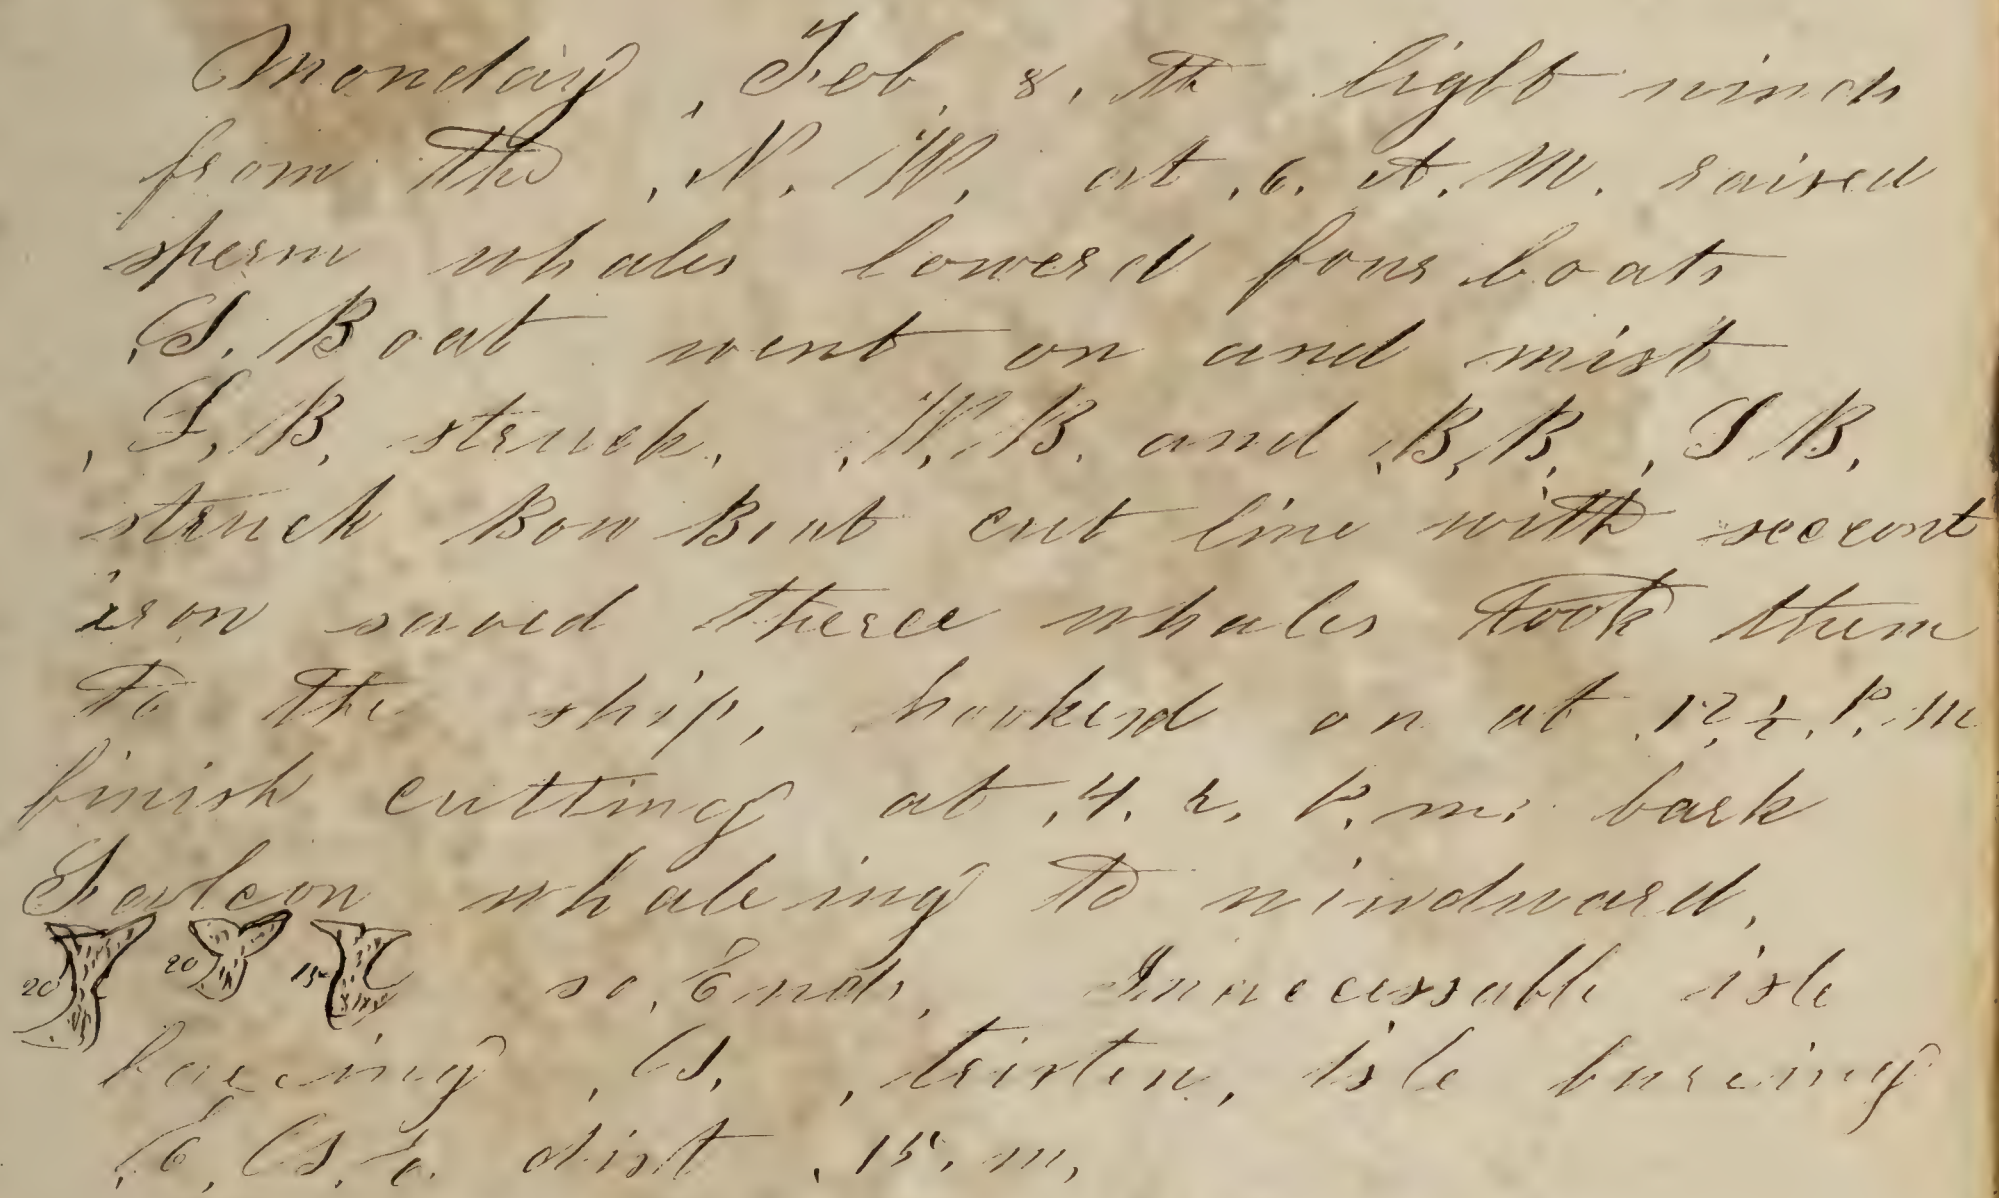 Monday, Feb, 8, th light winds
from the, N. W. at, 6. A. M. raised
sperm whales lowerd four boats
S. Boat went on and mist
L, B, struck, W, B. and B, B, S B,
struck Bow Boat cut line with seccont
iron saved theree whales took them
to the ship, hookend on at 12, ½, P. M
finish cutting at, 4. P. m: bark
Falcon whaleing to windward,
20 20 15 so, Ends, Innacessable isle
baring, S, tristen, isle bareing
E, S, E. dist, 15, m,